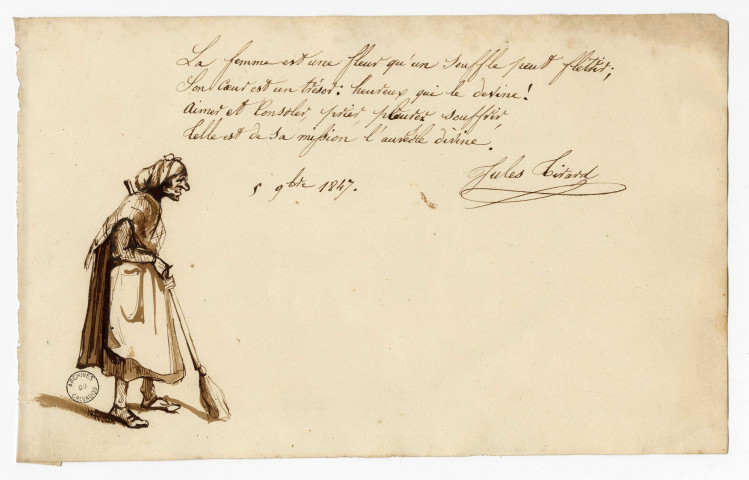 La femme est une fleur qu'un souffle peut flétrir;
Son cœur est un trésor: heureux qui le devine!
Aimer et Consoler, prier, pleurer, souffrir,
Telle est de sa mission l'auréole divine.
5 9bre 1847.
Jules Tirard
ARCHIVES
DU
CALVADOS